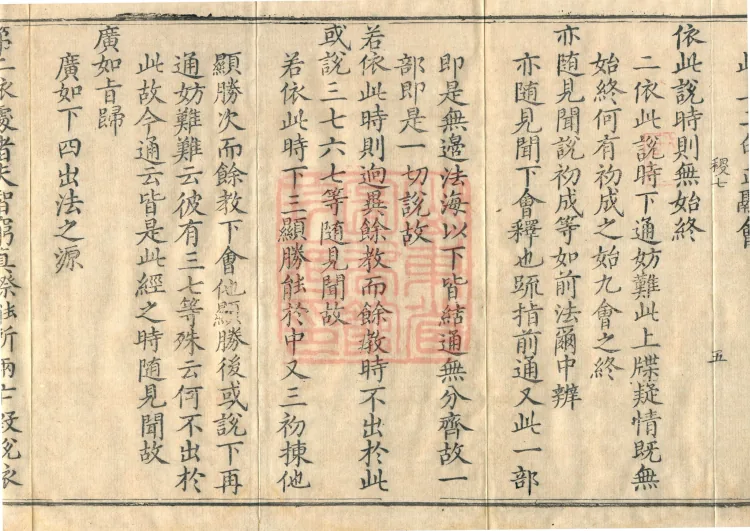 稷七
五
依此說時則無始終
二依此說時下通妨難此上牒疑情既無
始終何有初成之始九會之終
亦隨見聞說初成等如前法爾中辨
亦隨見聞下會釋也䟽指前通又此一部
即是無邊法海以下皆結通無分齊故一
部即是一切說故
若依此時則逈異餘教而餘教時不出於此
或說三七六七等隨見聞故
若依此時下三顯勝能於中又三初揀他
顯勝次而餘教下會他顯勝後或說下再
通妨難難云彼有三七等殊云何不出於
此故今通云皆是此經之時隨見聞故
廣如旨歸
廣如下四出法之源
第二依處者夫智窮真際能所兩亡假說依